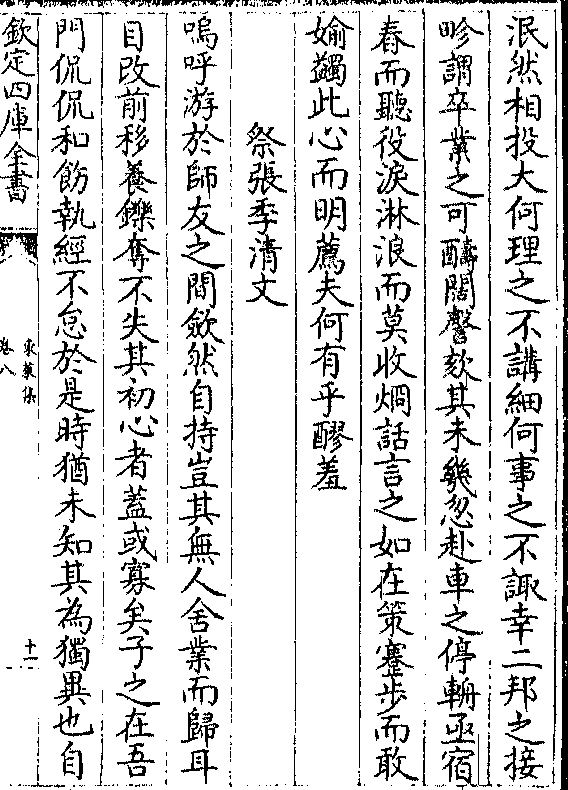 泯然相投大何理之不講細何事之不諏幸二邦之接
畛謂卒業之可醻闊謦欬其未幾忽赴車之停輈亟宿
舂而聽役淚淋浪而莫收烱話言之如在策蹇步而敢
媮蠲此心而明薦夫何有乎醪羞
祭張季清丈
嗚呼游於師友之間歛然自持豈其無人舍業而歸耳
目改前移養鑠奪不失其初心者蓋或寡矣子之在吾
門侃侃和飭執經不怠於是時猶未知其為獨異也自
欽定四庫全書
東萊集
卷八
十一